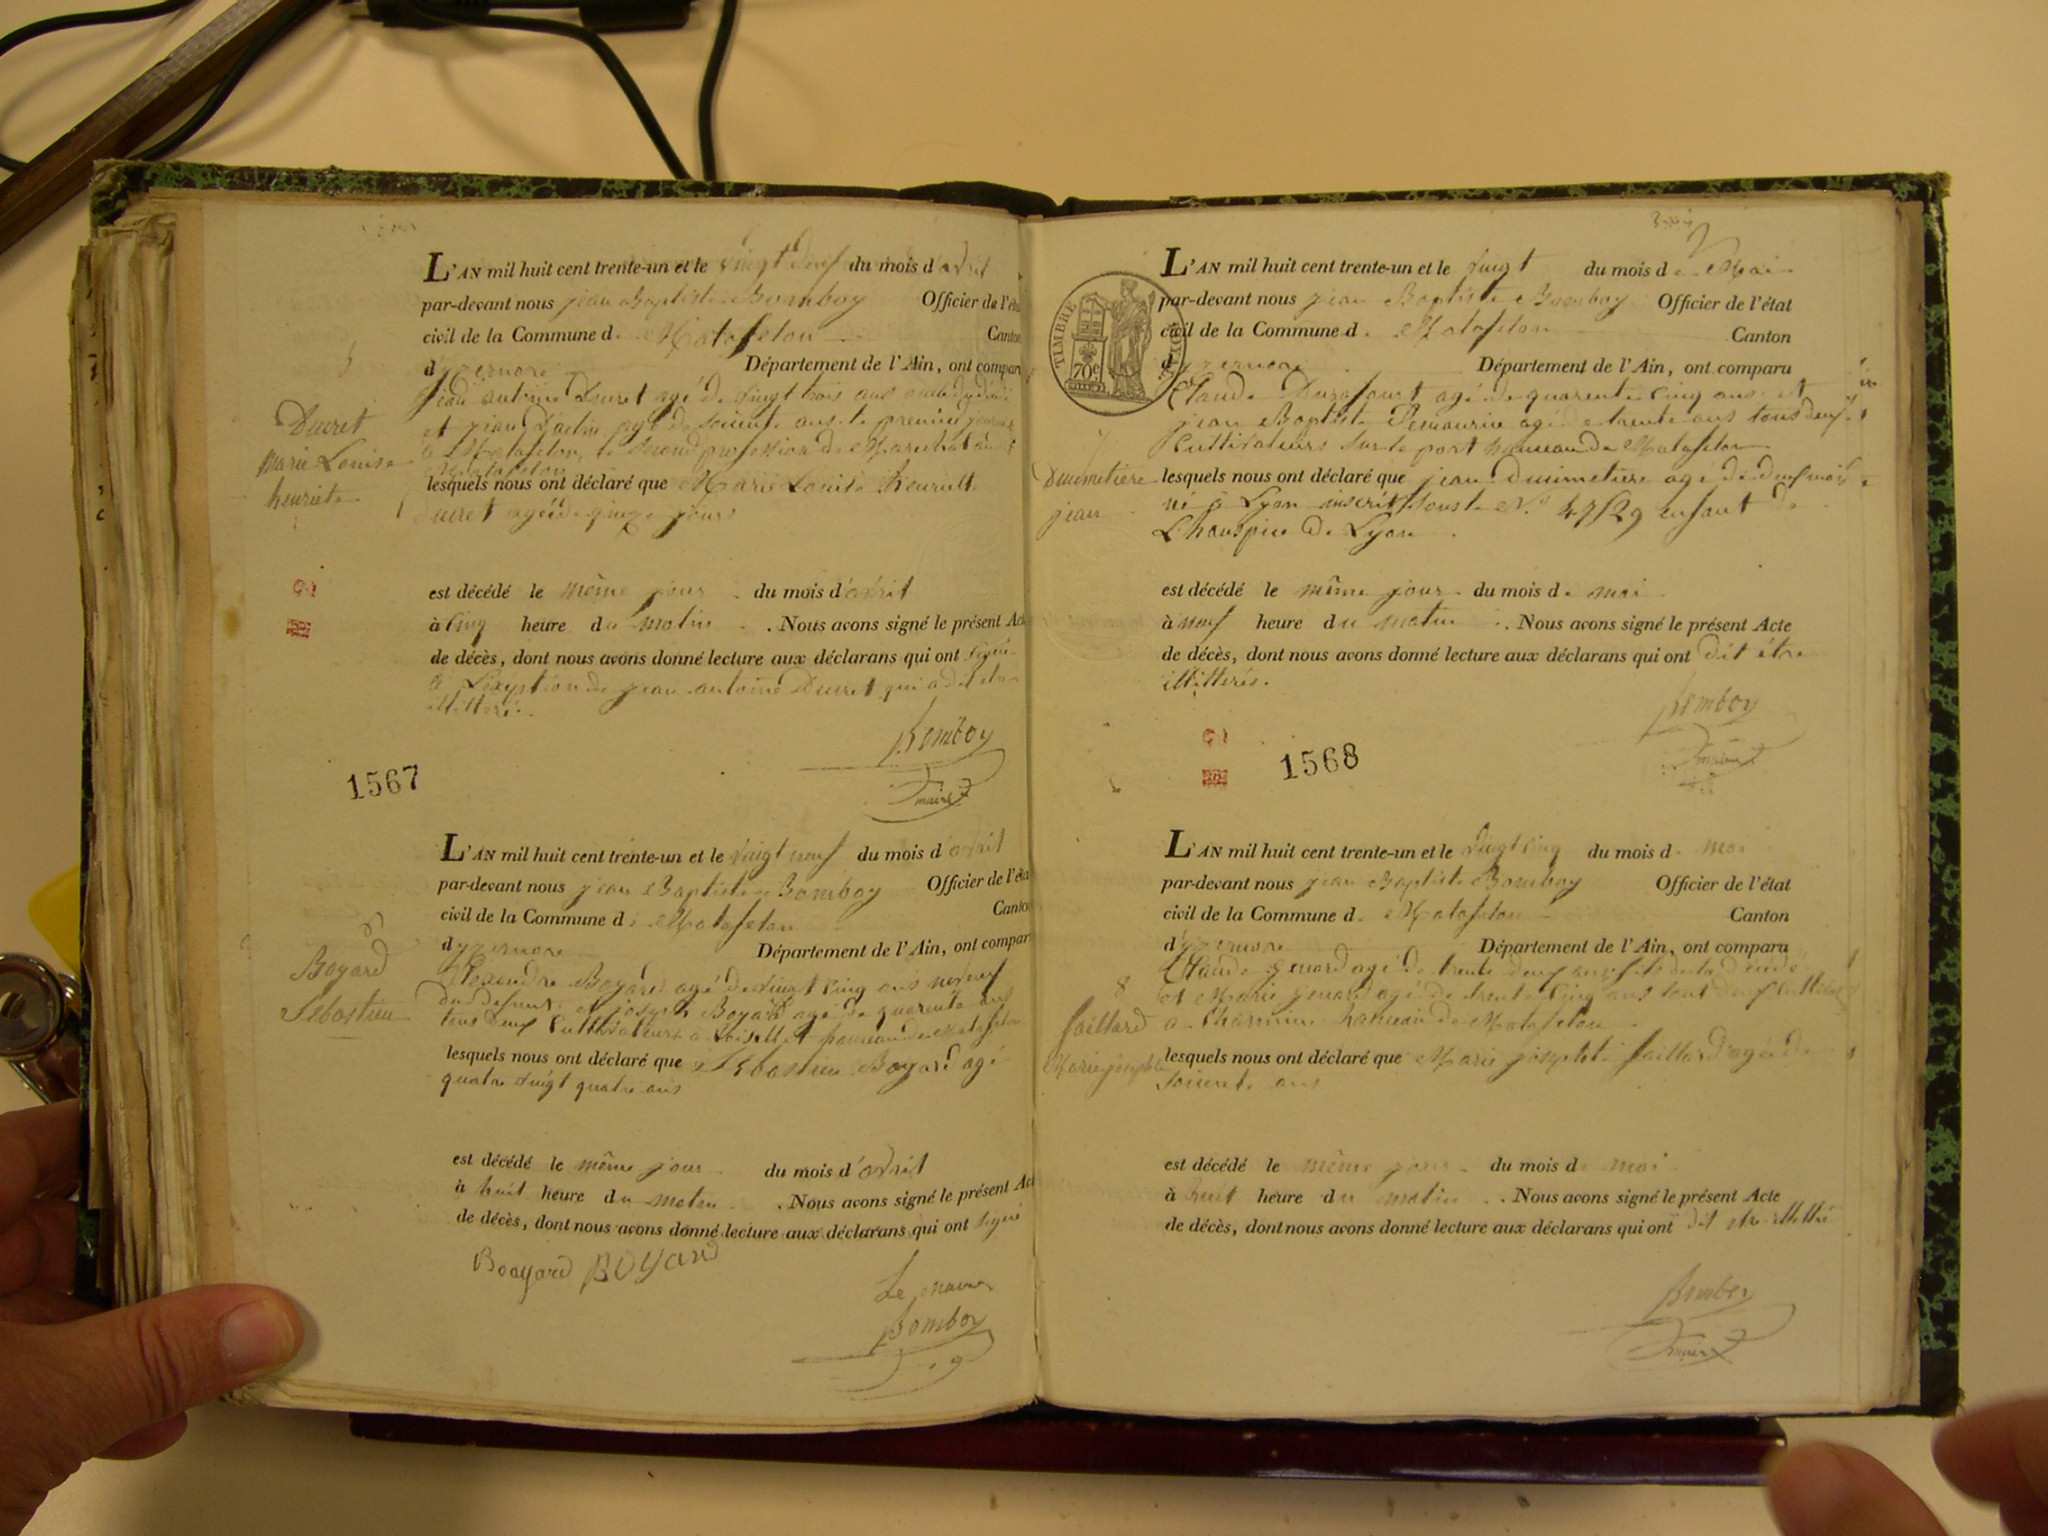 L'AN mil huit cent trente-un et le vingt neuf du mois d'avril
par-devant nous jean Baptiste Bomboy Officier de l'éta
civil de la Commune de Matafelon Canton
d'yzernore Département de l'Ain, ont compar
jean antoine Ducret agé de vingt trois ans
et jean agé de soixente ans le premier
à Matafelon, le second profession de Marechal
Matafelon
lesquels nous ont déclaré que Marie Louise henriett
Ducret agée de quinze jours
Ducret
Marie Louise
henriete
est décédé le même jour du mois d'avril
à cinq heure du matin . Nous avons signé le présent Ac
de décès, dont nous avons donné lecture aux déclarans qui ont signé
à L'exeption de jean antoine Ducret qui a dit etre
illitteré.
Bomboy
maire
1567
L'AN mil huit cent trente-un et le vingt neuf du mois d'avril
par-devant nous jean Baptiste Bomboy Officier de l'éta
civil de la Commune de Matafelon Canton
d'yzernore Département de l'Ain, ont compar
8
Boyard
Sébastien
alexandre Boyard agé de vingt cinq ans neveu
du defunt et joseph Boyard agé de quarente ans
tous deux Cultivateurs a hameau de Matafelon
lesquels nous ont déclaré que Sébastien Boyard agé
quatre vingt quatre ans
est décédé le même jour du mois d'avril
à huit heure du matin . Nous avons signé le présent Act
de décès, dont nous avons donné lecture aux déclarans qui ont signé
Booyard BOYARD
Le maire
Bomboy
L'AN mil huit cent trente-un et le vingt du mois de Mai
par-devant nous jean Baptiste Bomboy Officier de l'état
TIMBRE ROYAL
70c
civil de la Commune de Matafelon Canton
d'yzernore Département de l'Ain, ont comparu
Claude Durafourt agé de quarente cinq ans et
jean Baptiste agé de trente ans tous deux
Cultivateurs sur le port hameau de Matafelon
7
Duimetiere
jean
lesquels nous ont déclaré que jean Duimetiere agé de deux mois
né à Lyon inscrit sous le N.o 47529 enfant de
L'hauspice de Lyon
est décédé le même jour du mois de mai
à neuf heure du matin . Nous avons signé le présent Acte
de décès, dont nous avons donné lecture aux déclarans qui ont dit étre
illitterés.
Bomboy
maire
1568
L'AN mil huit cent trente-un et le vingt cinq du mois de mai
par-devant nous jean Baptiste Bomboy Officier de l'état
civil de la Commune de Matafelon Canton
d'yzernore Département de l'Ain, ont comparu
Claude genord agé de trente deux ans fils de la
et Marie genord agé de trente cinq ans tout deux
a Charmine hameau de Matafelon
8
faillard
Marie josephte
lesquels nous ont déclaré que Marie josephte faillard agée de
soixente ans
est décédé le même jour du mois de mai
à huit heure du matin . Nous avons signé le présent Acte
de décès, dont nous avons donné lecture aux déclarans qui ont dit etre illettré
Bomboy
maire